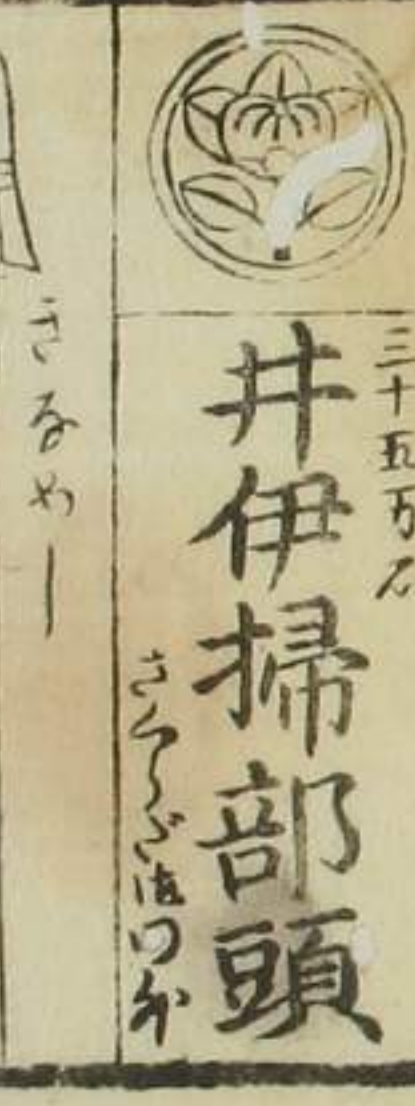 三十五万石
井伊掃部頭
さくらだ御門外
さなめし